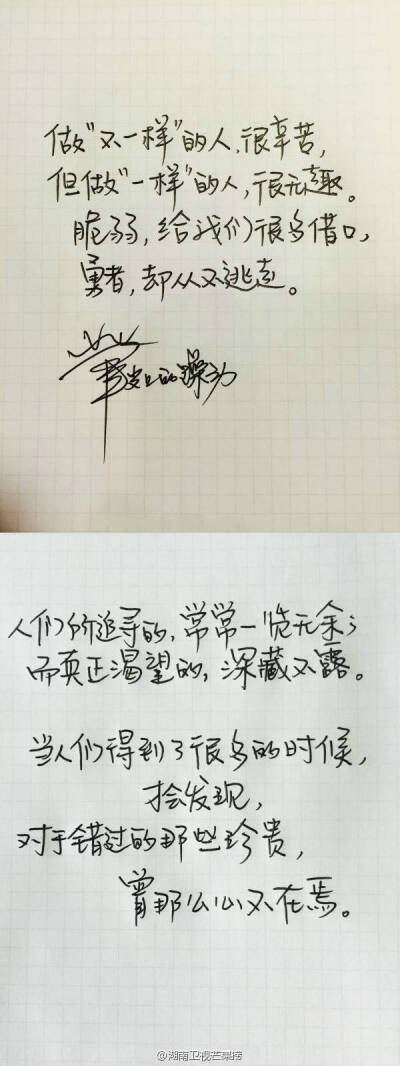 做"不一样"的人,很辛苦,
但做"一样"的人,很无趣。
脆弱,给我们很多借口,
勇者,却从不逃走。
笔尖上的躁动
人们所追寻的,常常一览无余;
而真正渴望的,深藏不露。
当人们得到了很多的时候,
才会发现,
对于错过的那些珍贵,
曾那么心不在焉。
@湖南卫视芒果捞